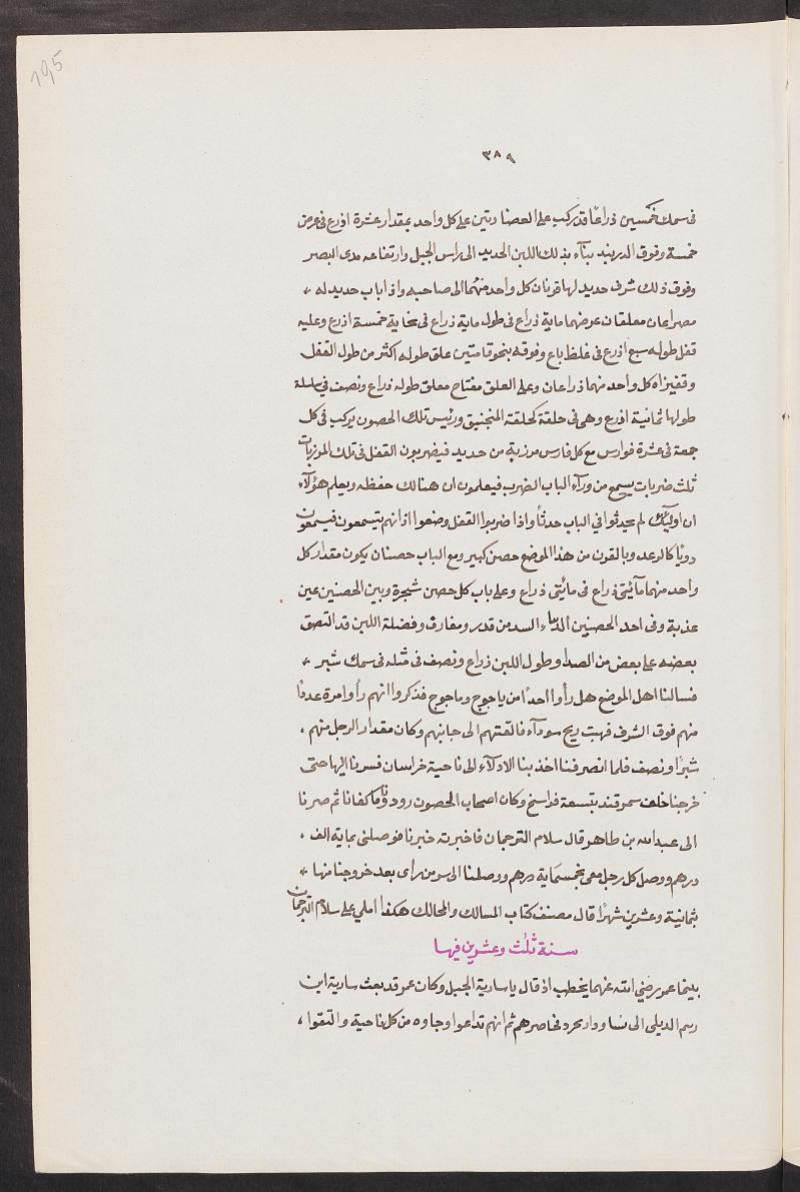 195
٣٨٩
فى سمك خمسين ذراعًا قد ركب على العضادتين على كل واحد بمقدار عشرة اذرع فى عرض
خمسة وفوق الدربند بنآء بذلك اللبن الحديد الى راس الجبل وارتفاعه مدى البصر
وفوق ذلك شرف حديد لها قرنان كل واحد منهما الى صاحبه واذا باب حديد له
مصراعان معلقان عرضهما ماية ذراع فى طول ماية ذراع فى نخاية خمسة اذرع وعليه
قفل طوله سبع اذرع فى غلظ باع وفوقه بنحو قامتين علق طوله اكثر من طول القفل
وقفيزاه كل واحد منهما ذراعان وعلى العلق مفتاح معلق طوله ذراع ونصف فى سلسلة
طولها ثمانية اذرع وهى فى حلقة كحلقة المنجنيق ورئيس تلك الحصون يركب فى كل
جمعة فى عشرة فوارس مع كل فارس مرزبة من حديد فيضربون القفل فى تلك المرزبات
ثلث ضربات يسمع من ورآء الباب الضرب فيعلمون ان هنالك حفظه ويعلم هؤلآء
ان اوليٓك لم يحدثوا في الباب حدثاً واذا ضربوا القفل وضعوا اذانهم يتسمعون فيسمعون
دويًا كالرعد وبالقرن من هذا الموضع حصن كبير ومع الباب حصنان يكون مقدار كل
واحد منهما مآئتى ذراع فى مائتى ذراع وعلى باب كل حصن شجرة وبين الحصنين عين
عذبة وفى احد الحصنين السد من قدر ومغارف وفضلة اللبن قد التصق
بعضه على بعض من الصدا وطول اللبن ذراع ونصف فى مثله فى سمك شبر
فسالنا اهل الموضع هل رأوا احدًا من ياجوج وماجوج فذكروا انهم رأوا مرة عددًا
منهم فوق الشرف فهبت ريح سودآء فالقتهم الى جانبهم وكان مقدار الرجل منهم
شبرًا ونصف فلما انصرفنا اخذ بنا الادلآء الى ناحية خراسان فسرنا اليها حتى
خرجنا خلف سمرقند بتسعة فراسخ وكان اصحاب الحصون زودونا ما كفانا ثم صرنا
الى عبدالله بن طاهر قال سلام الترجمان فاخبرته خبرنا فوصلنى بماية الف
درهم ووصل كل رجل معى بخمسماية درهم ووصلنا الى سر من راى بعد خروجنا منها
بثمانية وعشرين شهرًا قال مصنف كتاب المسالك والممالك هكذا املي على سلام الترجمان
سنة ثلث وعشرين فيها
بينما عمر رضي الله عنهما يخطب اذ قال يا سارية الجبل وكان عمر قد بعث سارية ابن
رسم الديلى الى نسا ودار بحرد فحاصرهم ثم انهم تداعوا وجاوه من كل ناحية والتقوا،